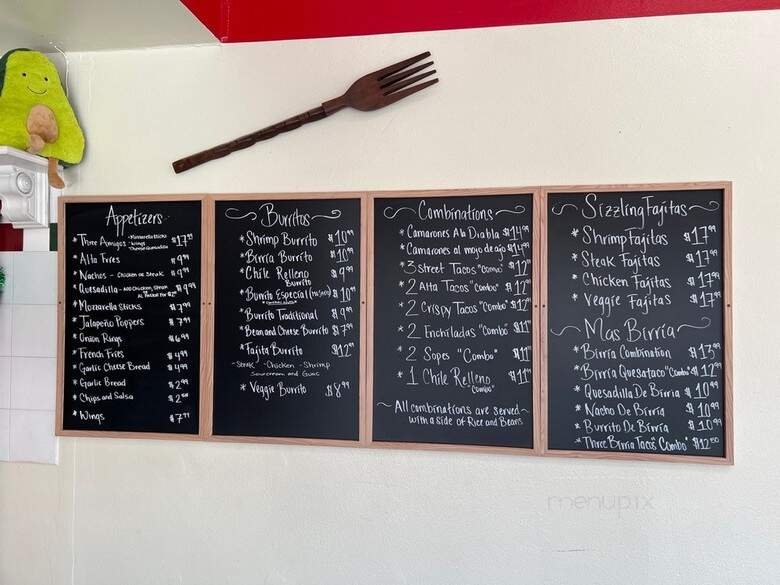 Appetizers
* Three Amigos - Mozzarella sticks - Wings - Cheese Quesadilla $17.99
Alta Fries $9.99
Nachos - Chicken or Steak $9.99
* Quesadilla - Add Chicken, Steak $9.99
* Mozzarella Sticks $7.99
* Jalapeño Poppers $7.99
* Onion Rings $6.99
* French Fries $4.99
* Garlic Cheese Bread $4.99
* Garlic Bread $2.99
* Chips and Salsa
* Wings $7.99
Burritos
* Shrimp Burrito $10.99
* Birria Burrito $10.99
* Chile Relleno Burrito $9.99
* Burrito Especial $10.99
* Burrito Traditional $9.99
* Bean and Cheese Burrito $7.99
* Fajita Burrito $12.99
- Steak - Chicken - Shrimp
Sourcream and Guac
* Veggie Burrito $8.99
Combinations
* Camarones Ala Diabla $14.99
* Camarones al mojo de ajo $14.99
* 3 Street Tacos "Combo" $12
* 2 Alta Tacos "Combo" $12
* 2 Crispy Tacos "Combo" $12
* 2 Enchiladas "Combo" $11
* 2 Sopes "Combo" $11
* 1 Chile Relleno "Combo" $11
~ All combinations are served ~
with a side of Rice and Beans
Sizzling Fajitas
* Shrimp Fajitas $17.99
* Steak Fajitas $17.99
* Chicken Fajitas $17.99
* Veggie Fajitas $17.99
Mas Birria
* Birria Combination $13.99
* Birria Quesataco "Combo" $12
* Quesadilla De Birria $10.99
* Nacho De Birria $10.99
* Burrito De Birria $10.99
* Three Birria Tacos "Combo" $12.50
menupix